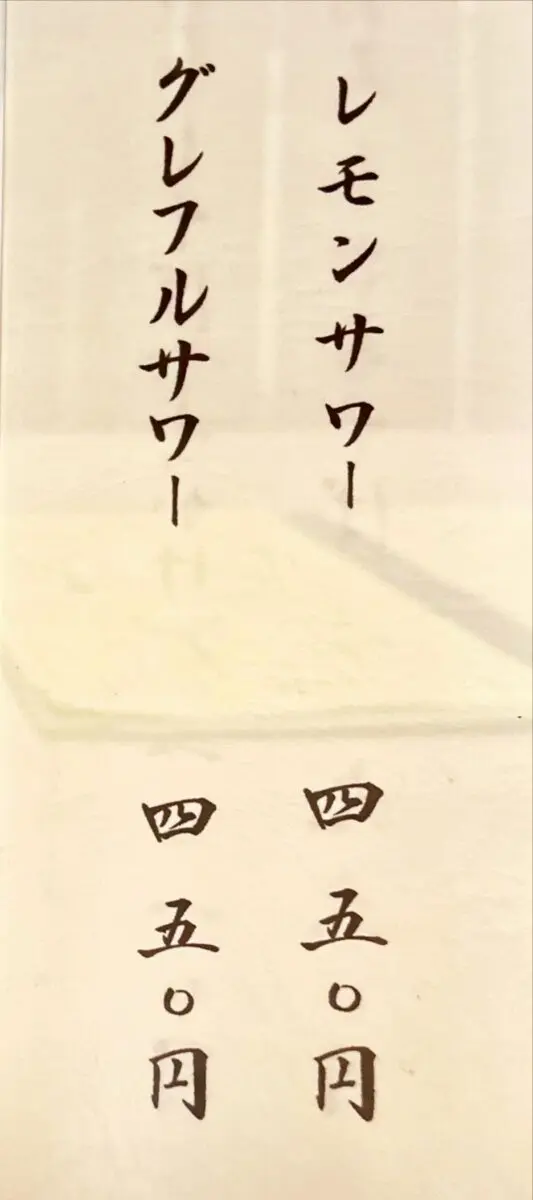 レモンサワー 四五〇円
グレフルサワー 四五〇円